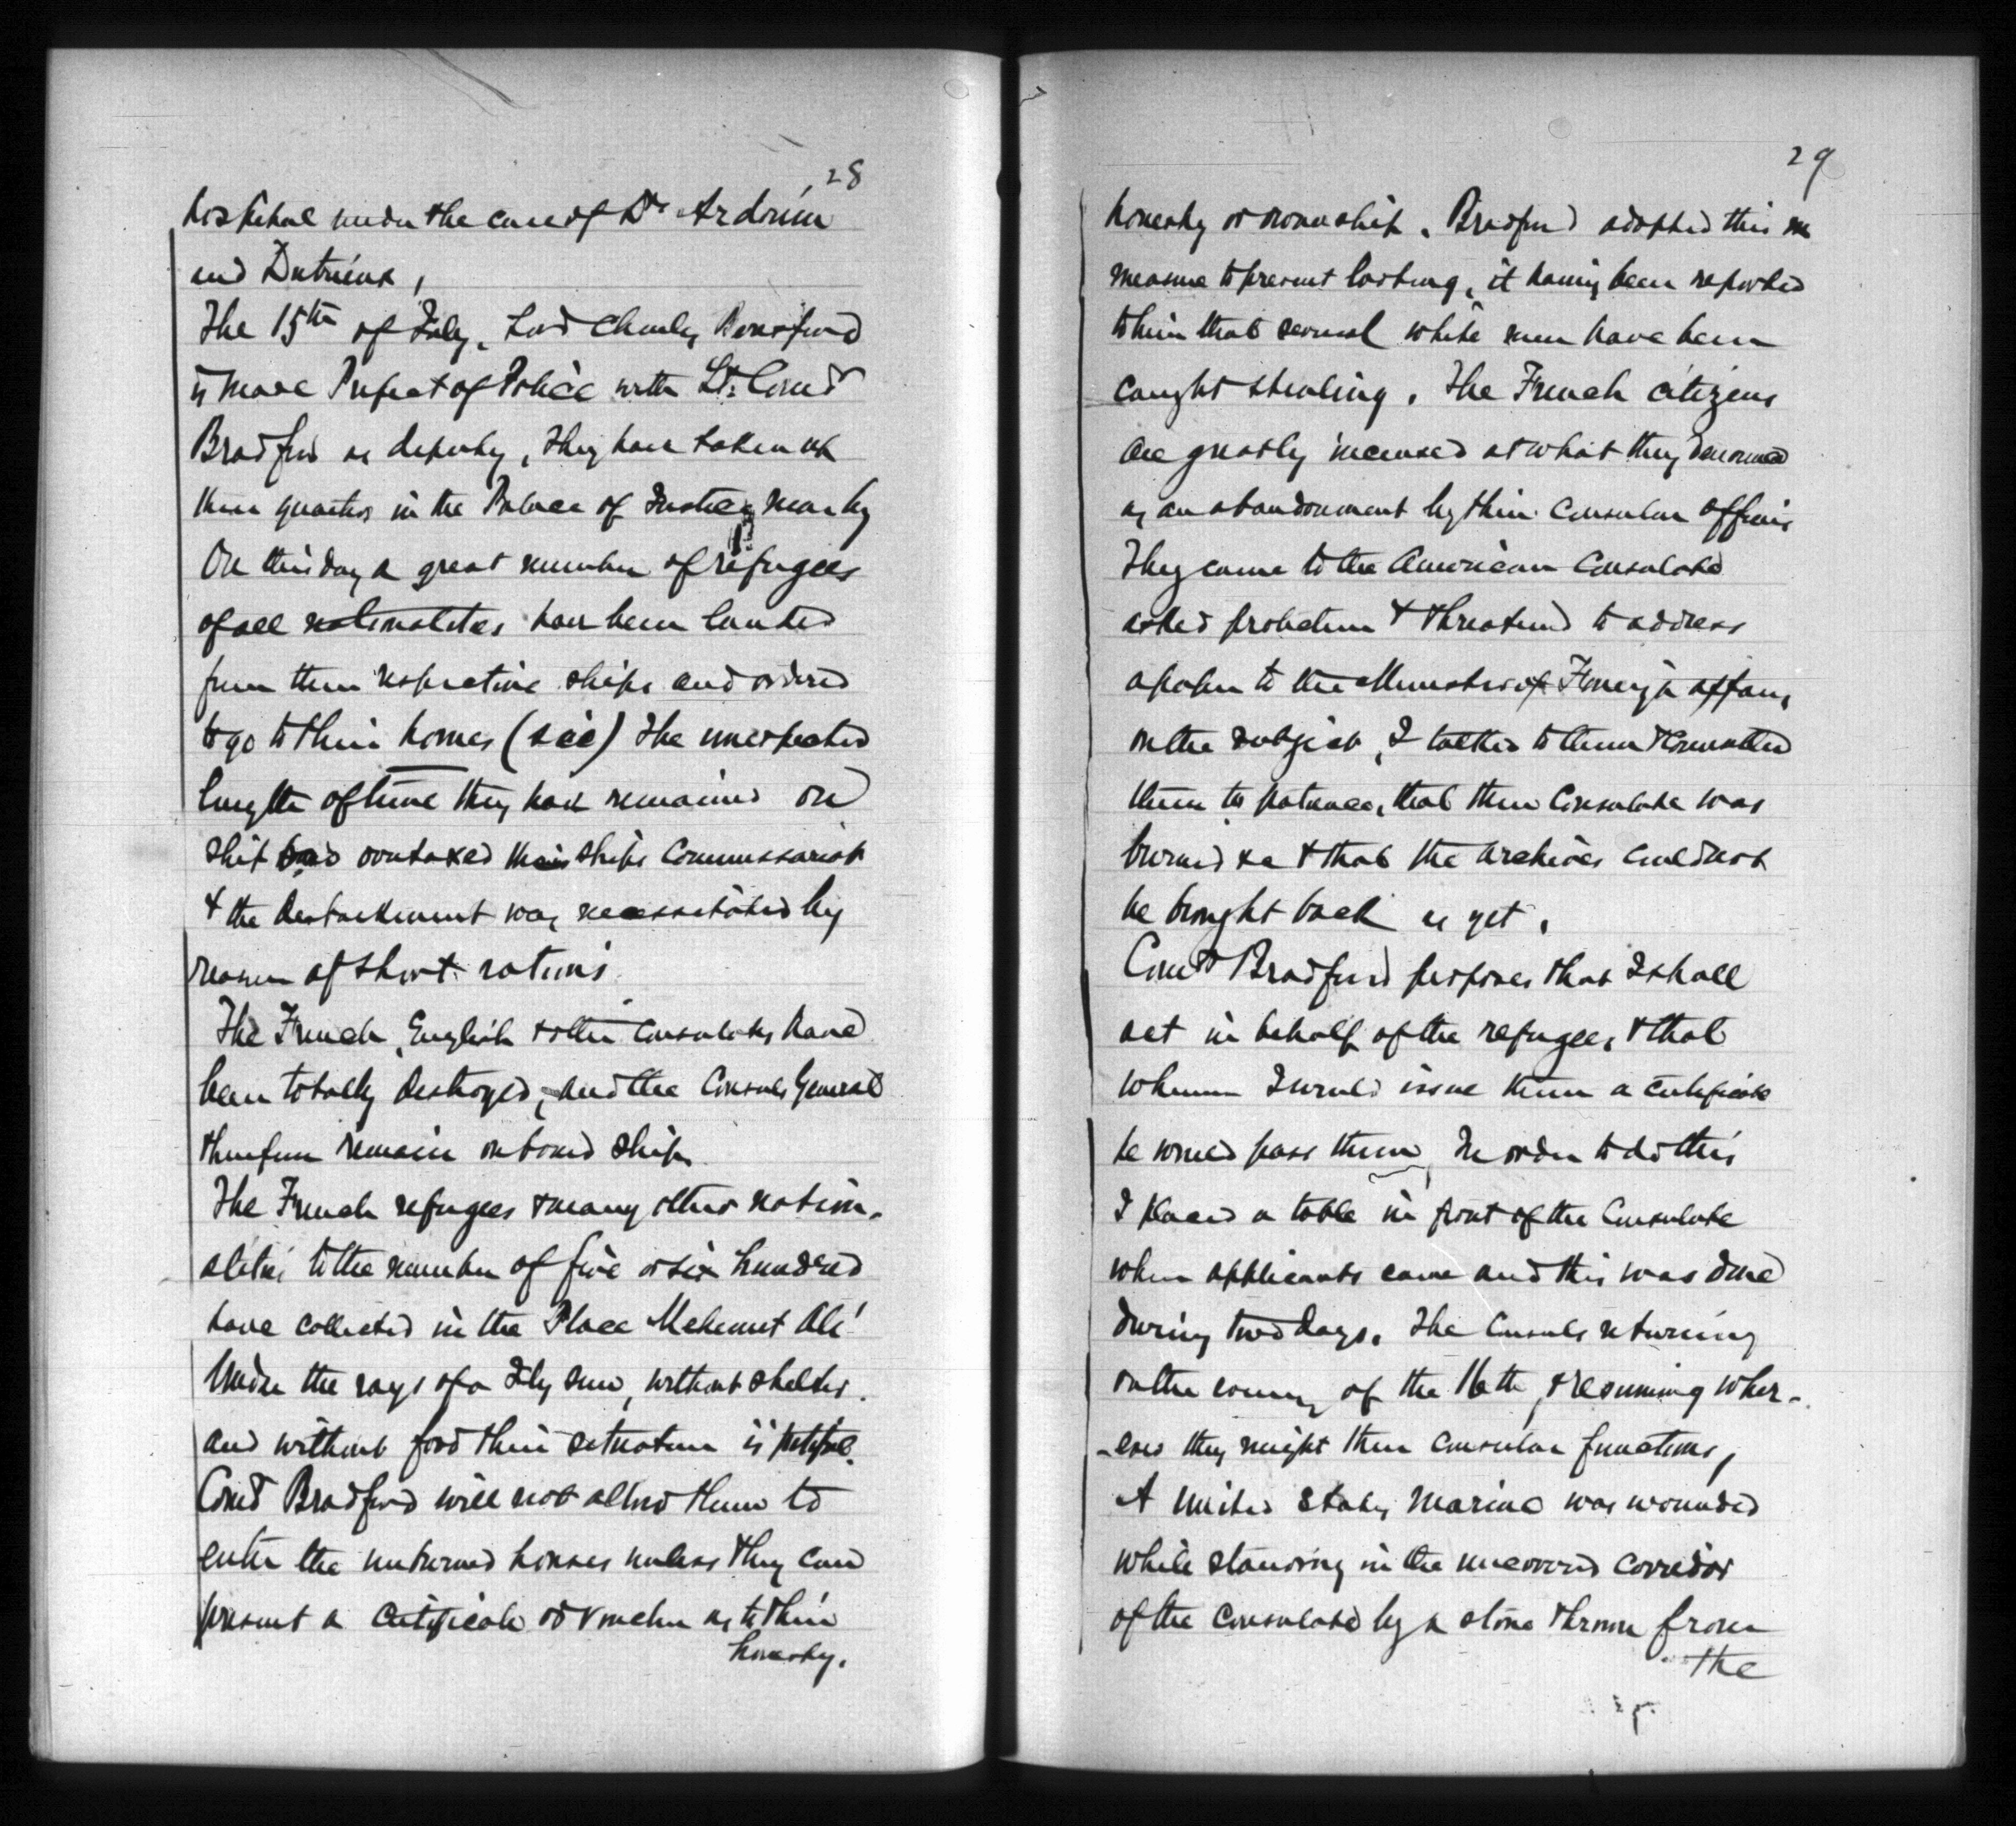 28
hospital under the care of Drs Ardouin
and Dutrieux,
The 15th of July, Lord Charles Beresford
is made Prefect of Police with Lt. Comd
Bradford as deputy, They have taken up
their quarters in the Palace of Justice near by
On this day a great number of refugees
of all nationalities have been landed
from their respective ships and ordered
to go to their homes (sic) The unexpected
length of time they have remained on
ship had overtaxed the ships Commissariat
& the debarkment was necessitated by
reason of short rations
The French, English & other Consulates have
been totally destroyed, and the Consuls General
therefore remain on board ship.
The French refugees & many other nation-
alities to the number of five or six hundred
have collected in the Place Mehemet Ali
Under the rays of a July sun, without shelter
and without food their situation is pitiful.
Comd Bradford will not allow them to
enter the unburned houses unless they can
present a certificate or voucher as to their
honesty.
29
honesty or ownership. Bradford adopted this
measure to prevent looting, it having been reported
to him that several white men have been
caught stealing. The French citizens
are greatly incensed at what they denounced
as an abandonment by their Consular officers
They came to the American Consulate
asked protection & threatened to address
a paper to the Minister of Foreign affairs
on the subject, I talked to them & counselled
them to patience, that their Consulate was
burned &c & that the archives could not
be brought back as yet.
Comdr Bradford proposes that I shall
act in behalf of the refugees, & that
whenever I would issue them a certificate
he would pass them, In order to do this
I placed a table in front of the Consulate
when applicants came and this was done
during two days. The Consuls returning
on the evening of the 16th, & resuming wher-
-ever they might their consular functions,
A United States Marine was wounded
while standing in the uncovered corridor
of the Consulate by a stone thrown from
the